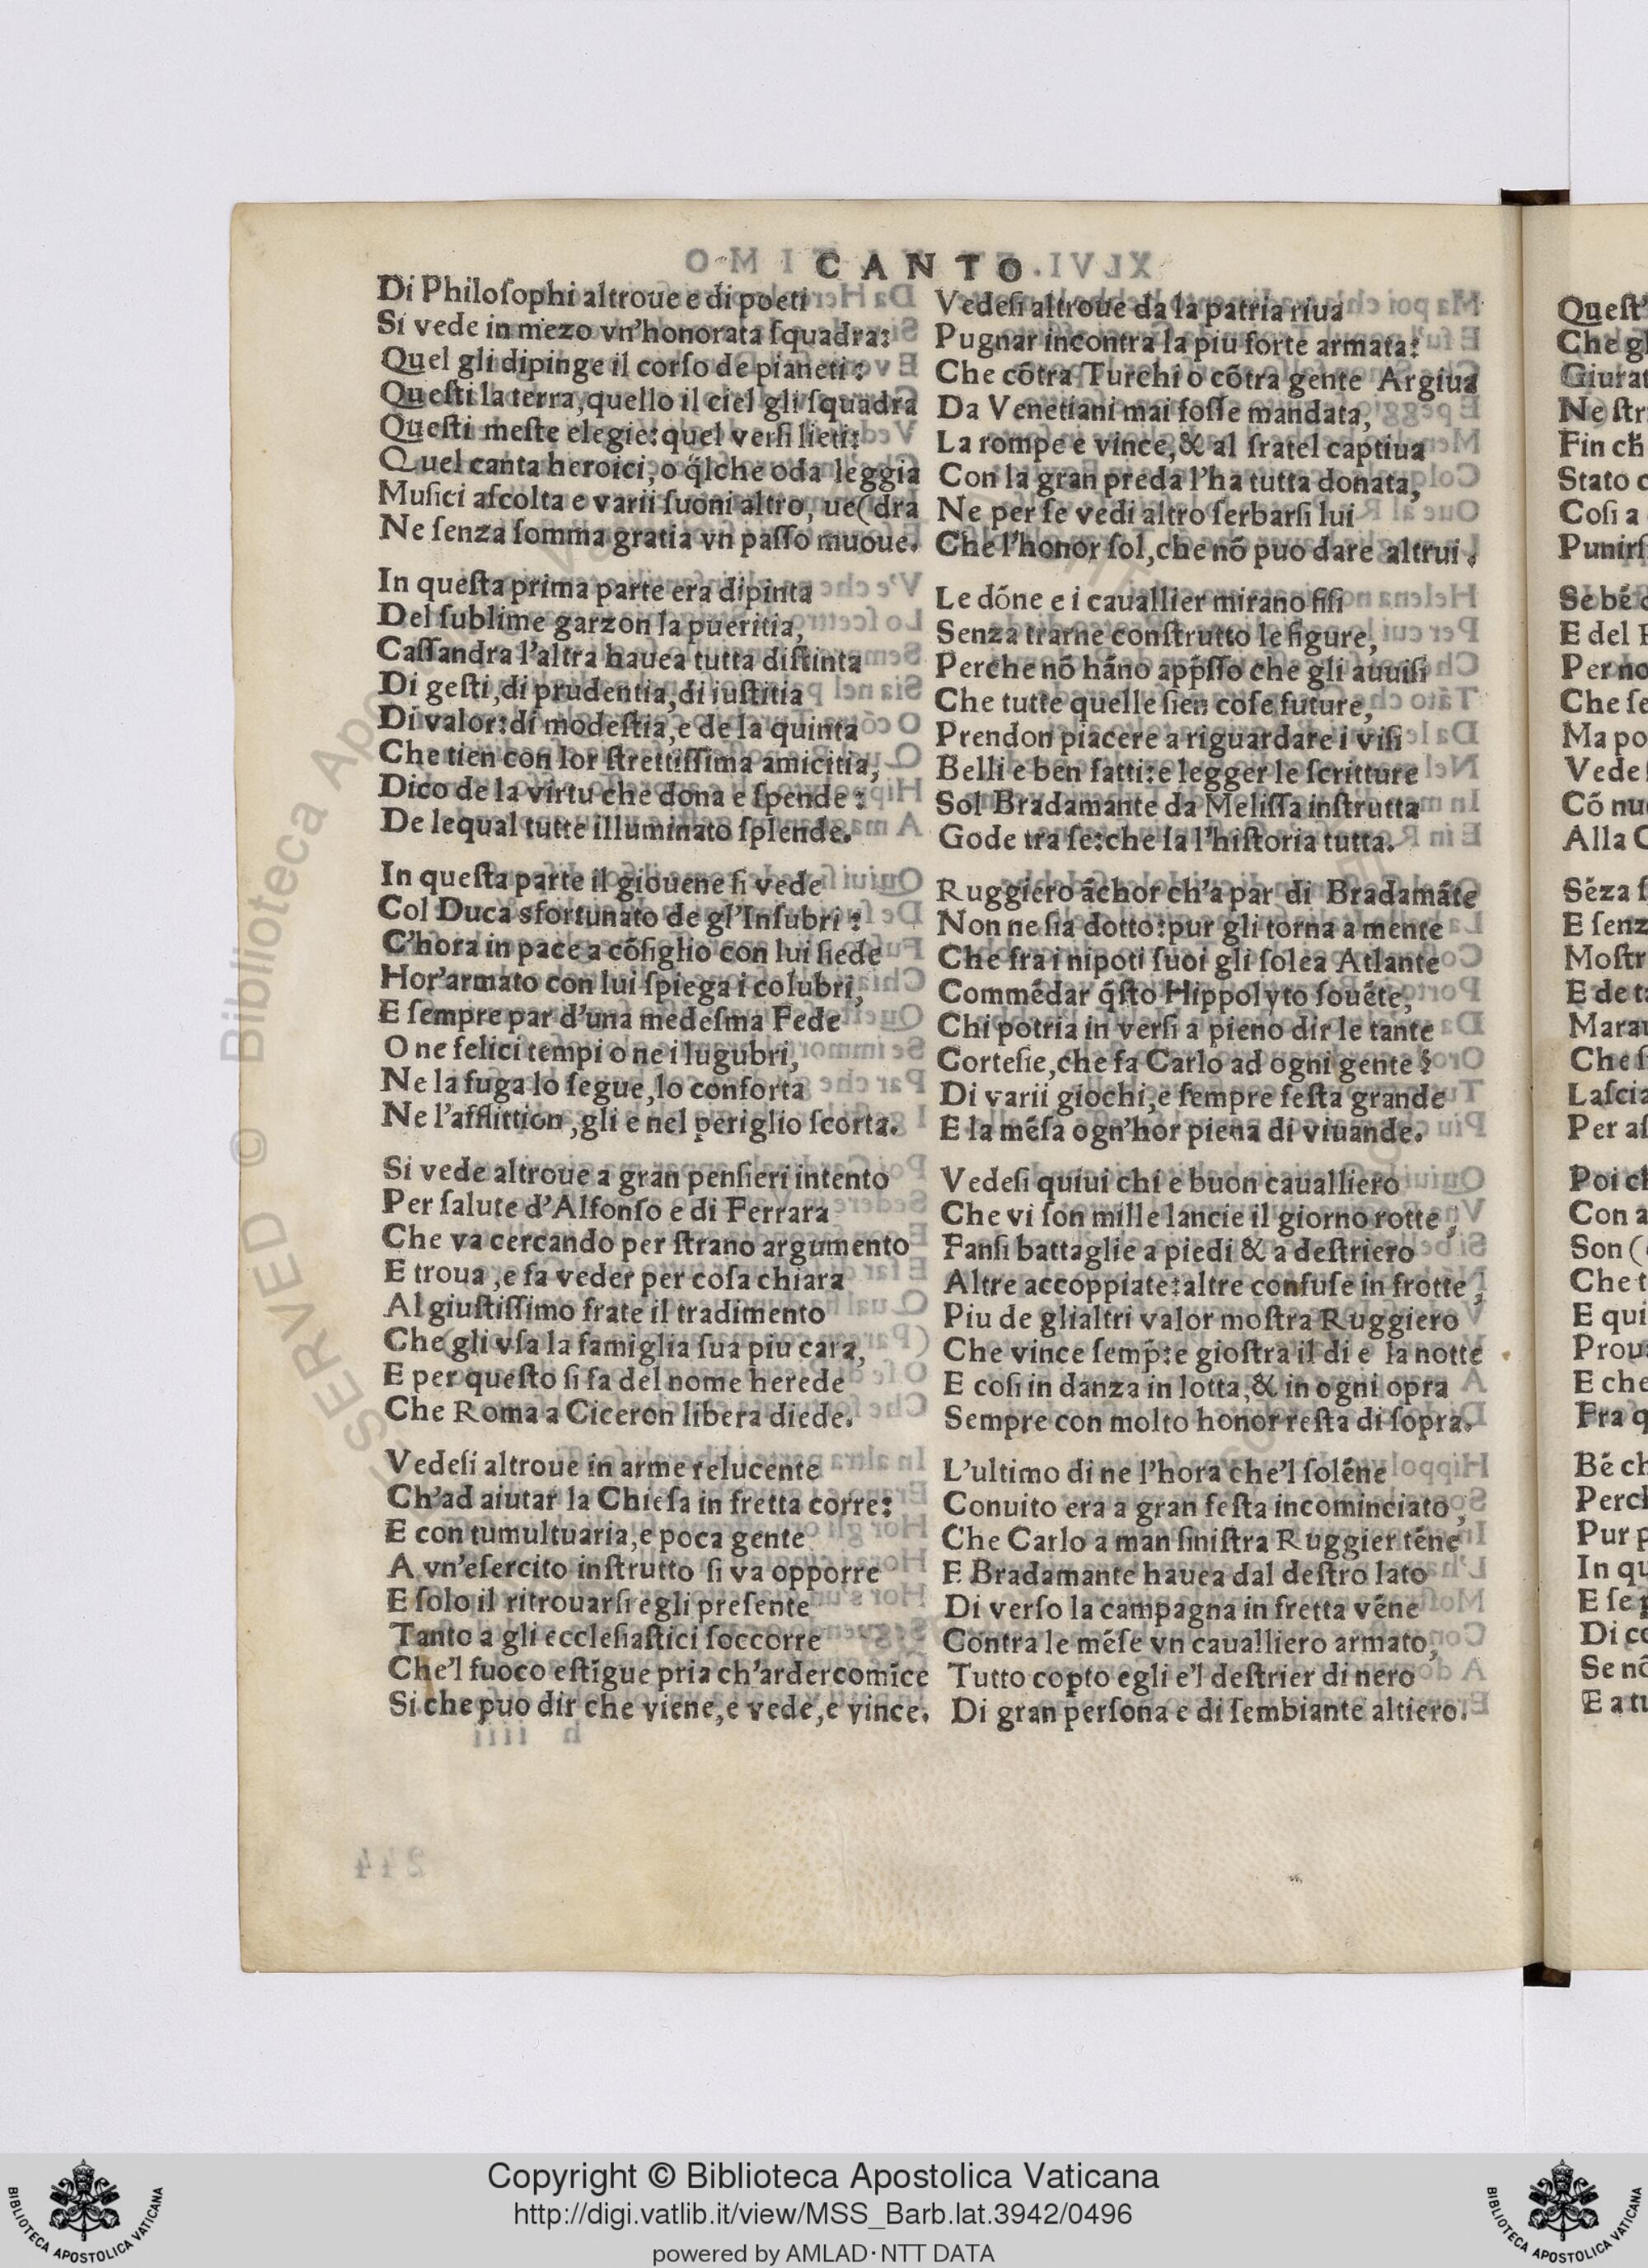 CANTO
Di Philoſophi altroue e di poeti
Si vede in mezo vn'honorata ſquadra:
Quel gli dipinge il corſo de pianeti:
Queſti la terra, quello il ciel gli ſquadra
Queſti meſte elegie: quel verſi lieti:
Quel canta heroici, o q̃lche oda leggia
Muſici aſcolta e varii ſuoni altro, ue(dra
Ne ſenza ſomma gratia vn paſſo muoue.
In queſta prima parte era dipinta
Del ſublime garzon la pueritia,
Caſſandra l'altra hauea tutta diſtinta
Di geſti, di prudentia, di iuſtitia
Di valor: di modeſtia, e de la quinta
Che tien con lor ſtrettiſſima amicitia,
Dico de la virtu che dona e ſpende:
De lequal tutte illuminato ſplende.
In queſta parte il giouene ſi vede
Col Duca sfortunato de gl'Inſubri:
C'hora in pace a cõſiglio con lui ſiede
Hor'armato con lui ſpiega i colubri,
E ſempre par d'una medeſma Fede
O ne felici tempi o ne i lugubri,
Ne la fuga lo ſegue, lo conforta
Ne l'afflittion, gli e nel ꝑiglio ſcorta.
Si vede altroue a gran penſieri intento
Per ſalute d'Alfonſo e di Ferrara
Che va cercando per ſtrano argumento
E troua, e fa veder per coſa chiara
Al giuſtiſſimo frate il tradimento
Che gli vſa la famiglia ſua piu cara,
E per queſto ſi fa del nome herede
Che Roma a Ciceron libera diede.
Vedeſi altroue in arme relucente
Ch'ad aiutar la Chieſa in fretta corre:
E con tumultuaria, e poca gente
A vn'eſercito inſtrutto ſi va opporre
E ſolo il ritrouarſi egli preſente
Tanto a gli eccleſiaſtici ſoccorre
Che'l fuoco eſtĩgue pria ch'arder comĩce
Si che puo dir che viene, e vede, e vince.
Vedeſi altroue da la patria riua
Pugnar incontra la piu forte armata:
Che cõtra Turchi o cõtra gente Argiua
Da Venetiani mai foſſe mandata,
La rompe e vince, & al fratel captiua
Con la gran preda l'ha tutta donata,
Ne per ſe vedi altro ſerbarſi lui
Che l'honor ſol, che nõ puo dare altrui.
Le dõne e i cauallier mirano fiſi
Senza trarne conſtrutto le figure,
Perche nõ hãno app̃ſſo che gli auuiſi
Che tutte quelle ſien coſe future,
Prendon piacere a riguardare i viſi
Belli e ben fatti: e legger le ſcritture
Sol Bradamante da Meliſſa inſtrutta
Gode tra ſe: che ſa l'hiſtoria tutta.
Ruggiero ãchor ch'a par di Bradamãte
Non ne ſia dotto: pur gli torna a mente
Che fra i nipoti ſuoi gli ſolea Atlante
Commẽdar q̃ſto Hippolyto ſouẽte,
Chi potria in verſi a pieno dir le tante
Corteſie, che fa Carlo ad ogni gente?
Di varii giochi, e ſempre feſta grande
E la mẽſa ogn'hor piena di viuande.
Vedeſi quiui chi e buon caualliero
Che vi ſon mille lancie il giorno rotte,
Fanſi battaglie a piedi & a deſtriero
Altre accoppiate: altre confuſe in frotte,
Piu de glialtri valor moſtra Ruggiero
Che vince ſemp̃: e gioſtra il di e la notte
E coſi in danza in lotta, & in ogni opra
Sempre con molto honor reſta di ſopra.
L'ultimo di ne l'hora che'l ſolẽne
Conuito era a gran feſta incominciato,
Che Carlo a man ſiniſtra Ruggier tẽne
E Bradamante hauea dal deſtro lato
Di verſo la campagna in fretta vẽne
Contra le mẽſe vn caualliero armato,
Tutto coꝑto egli e'l deſtrier di nero
Di gran perſona e di ſembiante altiero.
Copyright © Biblioteca Apostolica Vaticana
http://digi.vatlib.it/view/MSS_Barb.lat.3942/0496
powered by AMLAD·NTT DATA
BIBLIOTECA APOSTOLICA VATICANA
BIBLIOTECA APOSTOLICA VATICANA